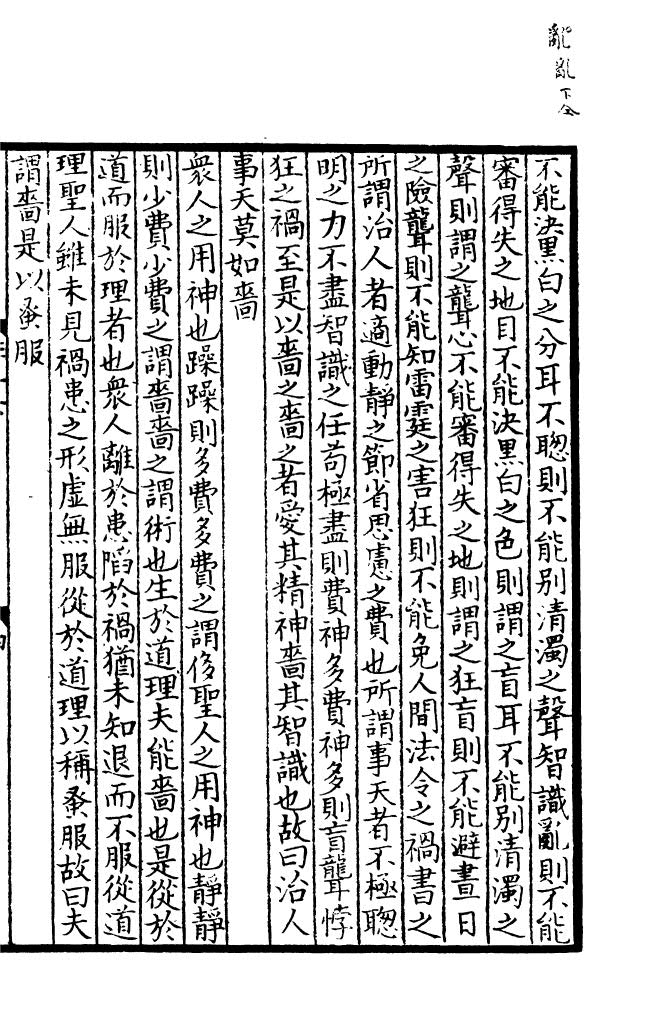 亂亂下仝
不能決黒白之分耳不聦則不能别清濁之聲智識亂則不能
審得失之地目不能決黒白之色則謂之盲耳不能别清濁之
聲則謂之聾心不能審得失之地則謂之狂盲則不能避晝日
之險聾則不能知雷霆之害狂則不能免人間法令之禍書之
所謂治人者適動靜之節省思慮之費也所謂事天者不極聦
明之力不盡智識之任苟極盡則費神多費神多則盲聾悖
狂之禍至是以嗇之嗇之者愛其精神嗇其智識也故曰治人
事天莫如嗇
衆人之用神也躁躁則多費多費之謂侈聖人之用神也靜靜
則少費少費之謂嗇嗇之謂術也生於道理夫能嗇也是從於
道而服於理者也衆人離於患陷於禍猶未知退而不服從道
理聖人雖未見禍患之形虚無服從於道理以稱蚤服故曰夫
謂嗇是以蚤服